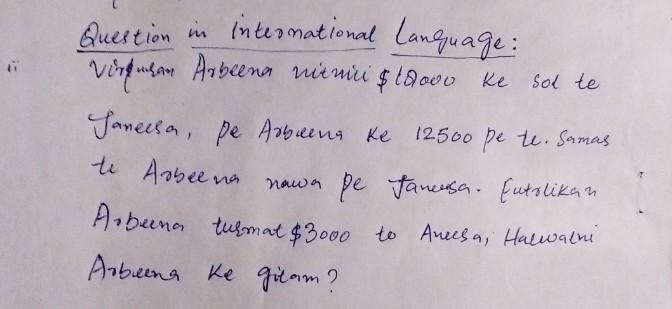 Question in International Language:
ii Virfusan Arbeena nitnici $18000 Ke sol te
Janeesa, pe Arbeena Ke 12500 pe te. Samas
te Arbeena nawa pe Janeesa. Eutslikan
Arbeena tusmat $3000 to Aneesa, Halwatni
Arbeena Ke gitam?